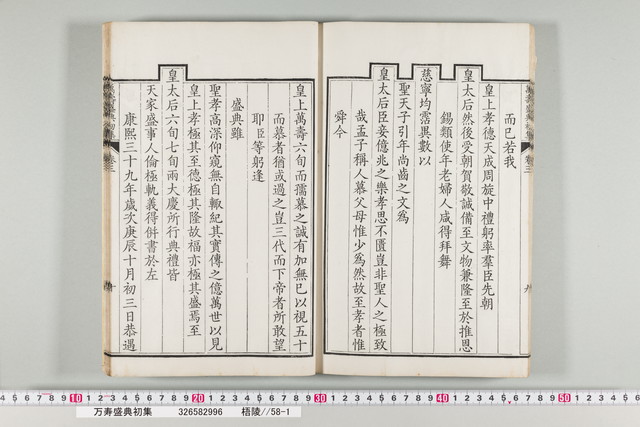 萬壽盛典初集
卷三
九
而已若我
皇上孝德天成周旋中禮躬率羣臣先朝
皇太后然後受朝賀敬誠備至文物兼隆至於推恩
錫類使年老婦人咸得拜舞
慈寧均霑異數以
聖天子引年尚齒之文為
皇太后臣妾億兆之樂孝思不匱豈非聖人之極致
哉孟子稱人慕父母惟少為然故至孝者惟
舜今
皇上萬壽六旬而孺慕之誠有加無已以視五十
而慕者猶或過之豈三代而下帝者所敢望
耶臣等躬逢
盛典雖
聖孝高深仰窺無自輙紀其實傳之億萬世以見
皇上孝極其至德極其隆故福亦極其盛焉至
皇太后六旬七旬兩大慶所行典禮皆
天家盛事人倫極軌義得併書於左
康熙三十九年歲次庚辰十月初三日恭遇
萬壽盛典初集
卷三
十
万寿盛典初集 326582996 梧陵//58-1